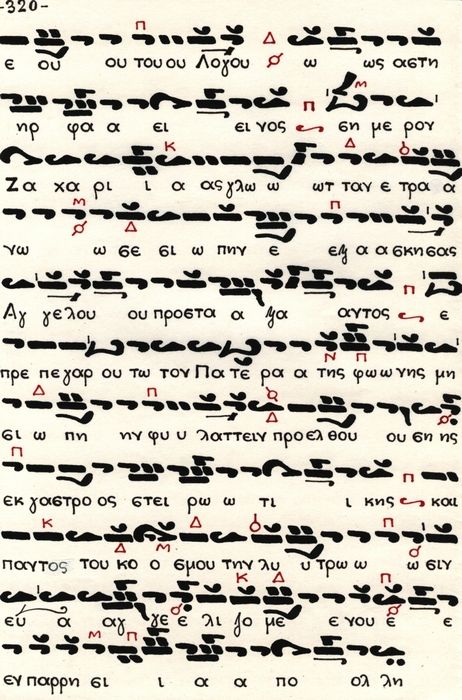 -320-
ε ου ου του ου Λογου ω ως αστη
ηρ φα α ει ει νος ση με ρον
Ζα χα ρι ι α ας γλω ω ωτ ταν ε τρα α
νω ω σε σι ω πην ε εξ α α σκησας
Αγ γελου ου προστα α ξα αντος ε
πρε πε γαρ ου τω τον Πα τε ρα α της φω ω νης μη
σι ω πη ην φυ υ λαττειν προελθου ου ση ης
εκ γαστρο ος στει ρω ω τι ι κης και
παντος του κο ο σμου την λυ υ τρω ω ω σιν
ευ α αγ γε ε λι ζο με ε νου ε ε
εν παρρη σι ι α α πο ολ λη